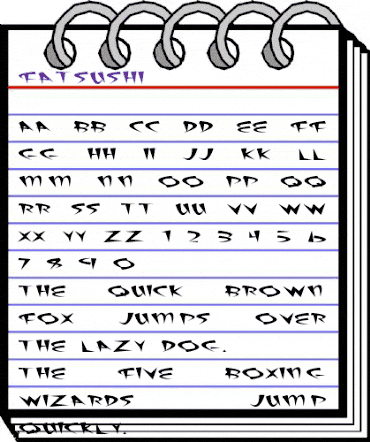 FATSUSHI
AA BB CC DD EE FF
GG HH II JJ KK LL
MM NN OO PP QQ
RR SS TT UU VV WW
XX YY ZZ 1 2 3 4 5 6
7 8 9 0
THE QUICK BROWN
FOX JUMPS OVER
THE LAZY DOG.
THE FIVE BOXING
WIZARDS JUMP
QUICKLY.